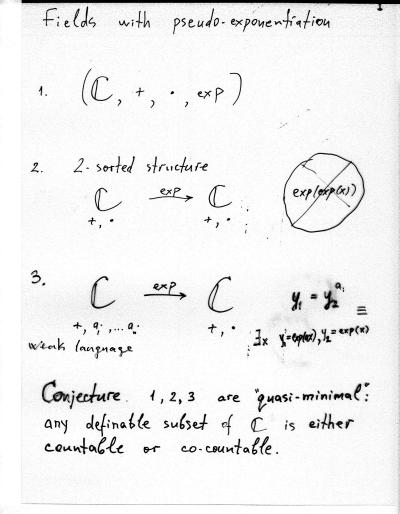 1
Fields with pseudo-exponentiation
1. (ℂ, +, ·, exp)
2. 2-sorted structure
ℂ exp→ ℂ
+, · +, ·
exp(exp(x))
3. ℂ exp→ ℂ
y₁ = y₂^a₁ ≡
+, a₁, ... aᵢ +, ·
weak language
∃x y₁=exp(ax), y₂=exp(x)
Conjecture. 1, 2, 3 are "quasi-minimal":
any definable subset of ℂ is either
countable or co-countable.